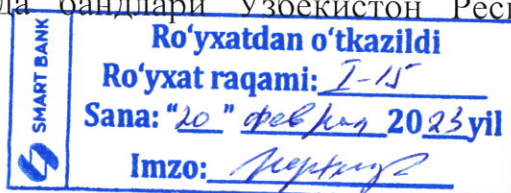 бандлари Ўзбекистон
SMART BANK
Ro‘yxatdan o‘tkazildi
Ro‘yxat raqami: I-15
Sana: “20” феврал 2023 yil
Imzo: